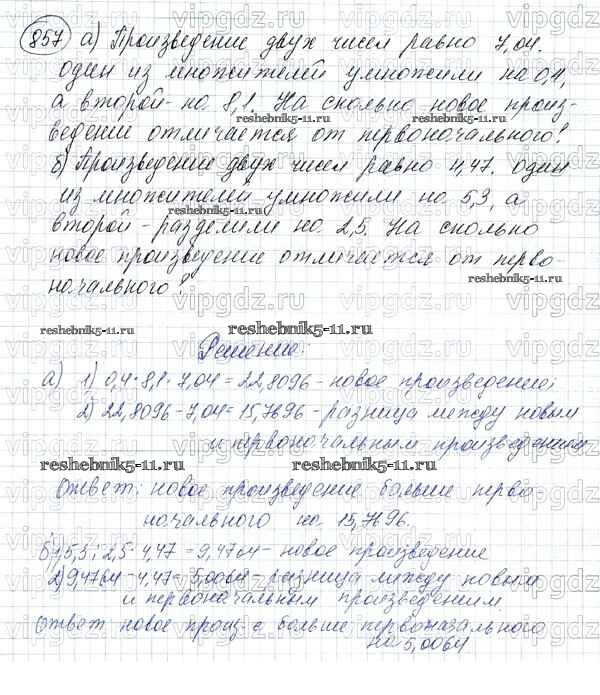 857 а) Произведение двух чисел равно 7,04.
один из множителей умножили на 0,4,
а второй - на 8,1. На сколько новое произ-
ведение отличается от первоначального?
б) Произведение двух чисел равно 4,47. один
из множителей умножили на 5,3, а
второй - разделили на 2,5. На сколько
новое произведение отличается от перво-
начального?
Решение:
а) 1) 0,4 · 8,1 · 7,04 = 22,8096 - новое произведение;
2) 22,8096 - 7,04 = 15,7696 - разница между новым
и первоначальным произведением
Ответ: новое произведение больше перво
начального на 15,7696.
б) 1) 5,3 : 2,5 · 4,47 = 9,4764 - новое произведение
2) 9,4764 - 4,47 = 5,0064 - разница между новым
и первоначальным произведением.
Ответ новое произ-е больше первоначального
на 5,0064
reshebnik5-11.ru
reshebnik5-11.ru
reshebnik5-11.ru
reshebnik5-11.ru
reshebnik5-11.ru
reshebnik5-11.ru
reshebnik5-11.ru
vipgdz.ru